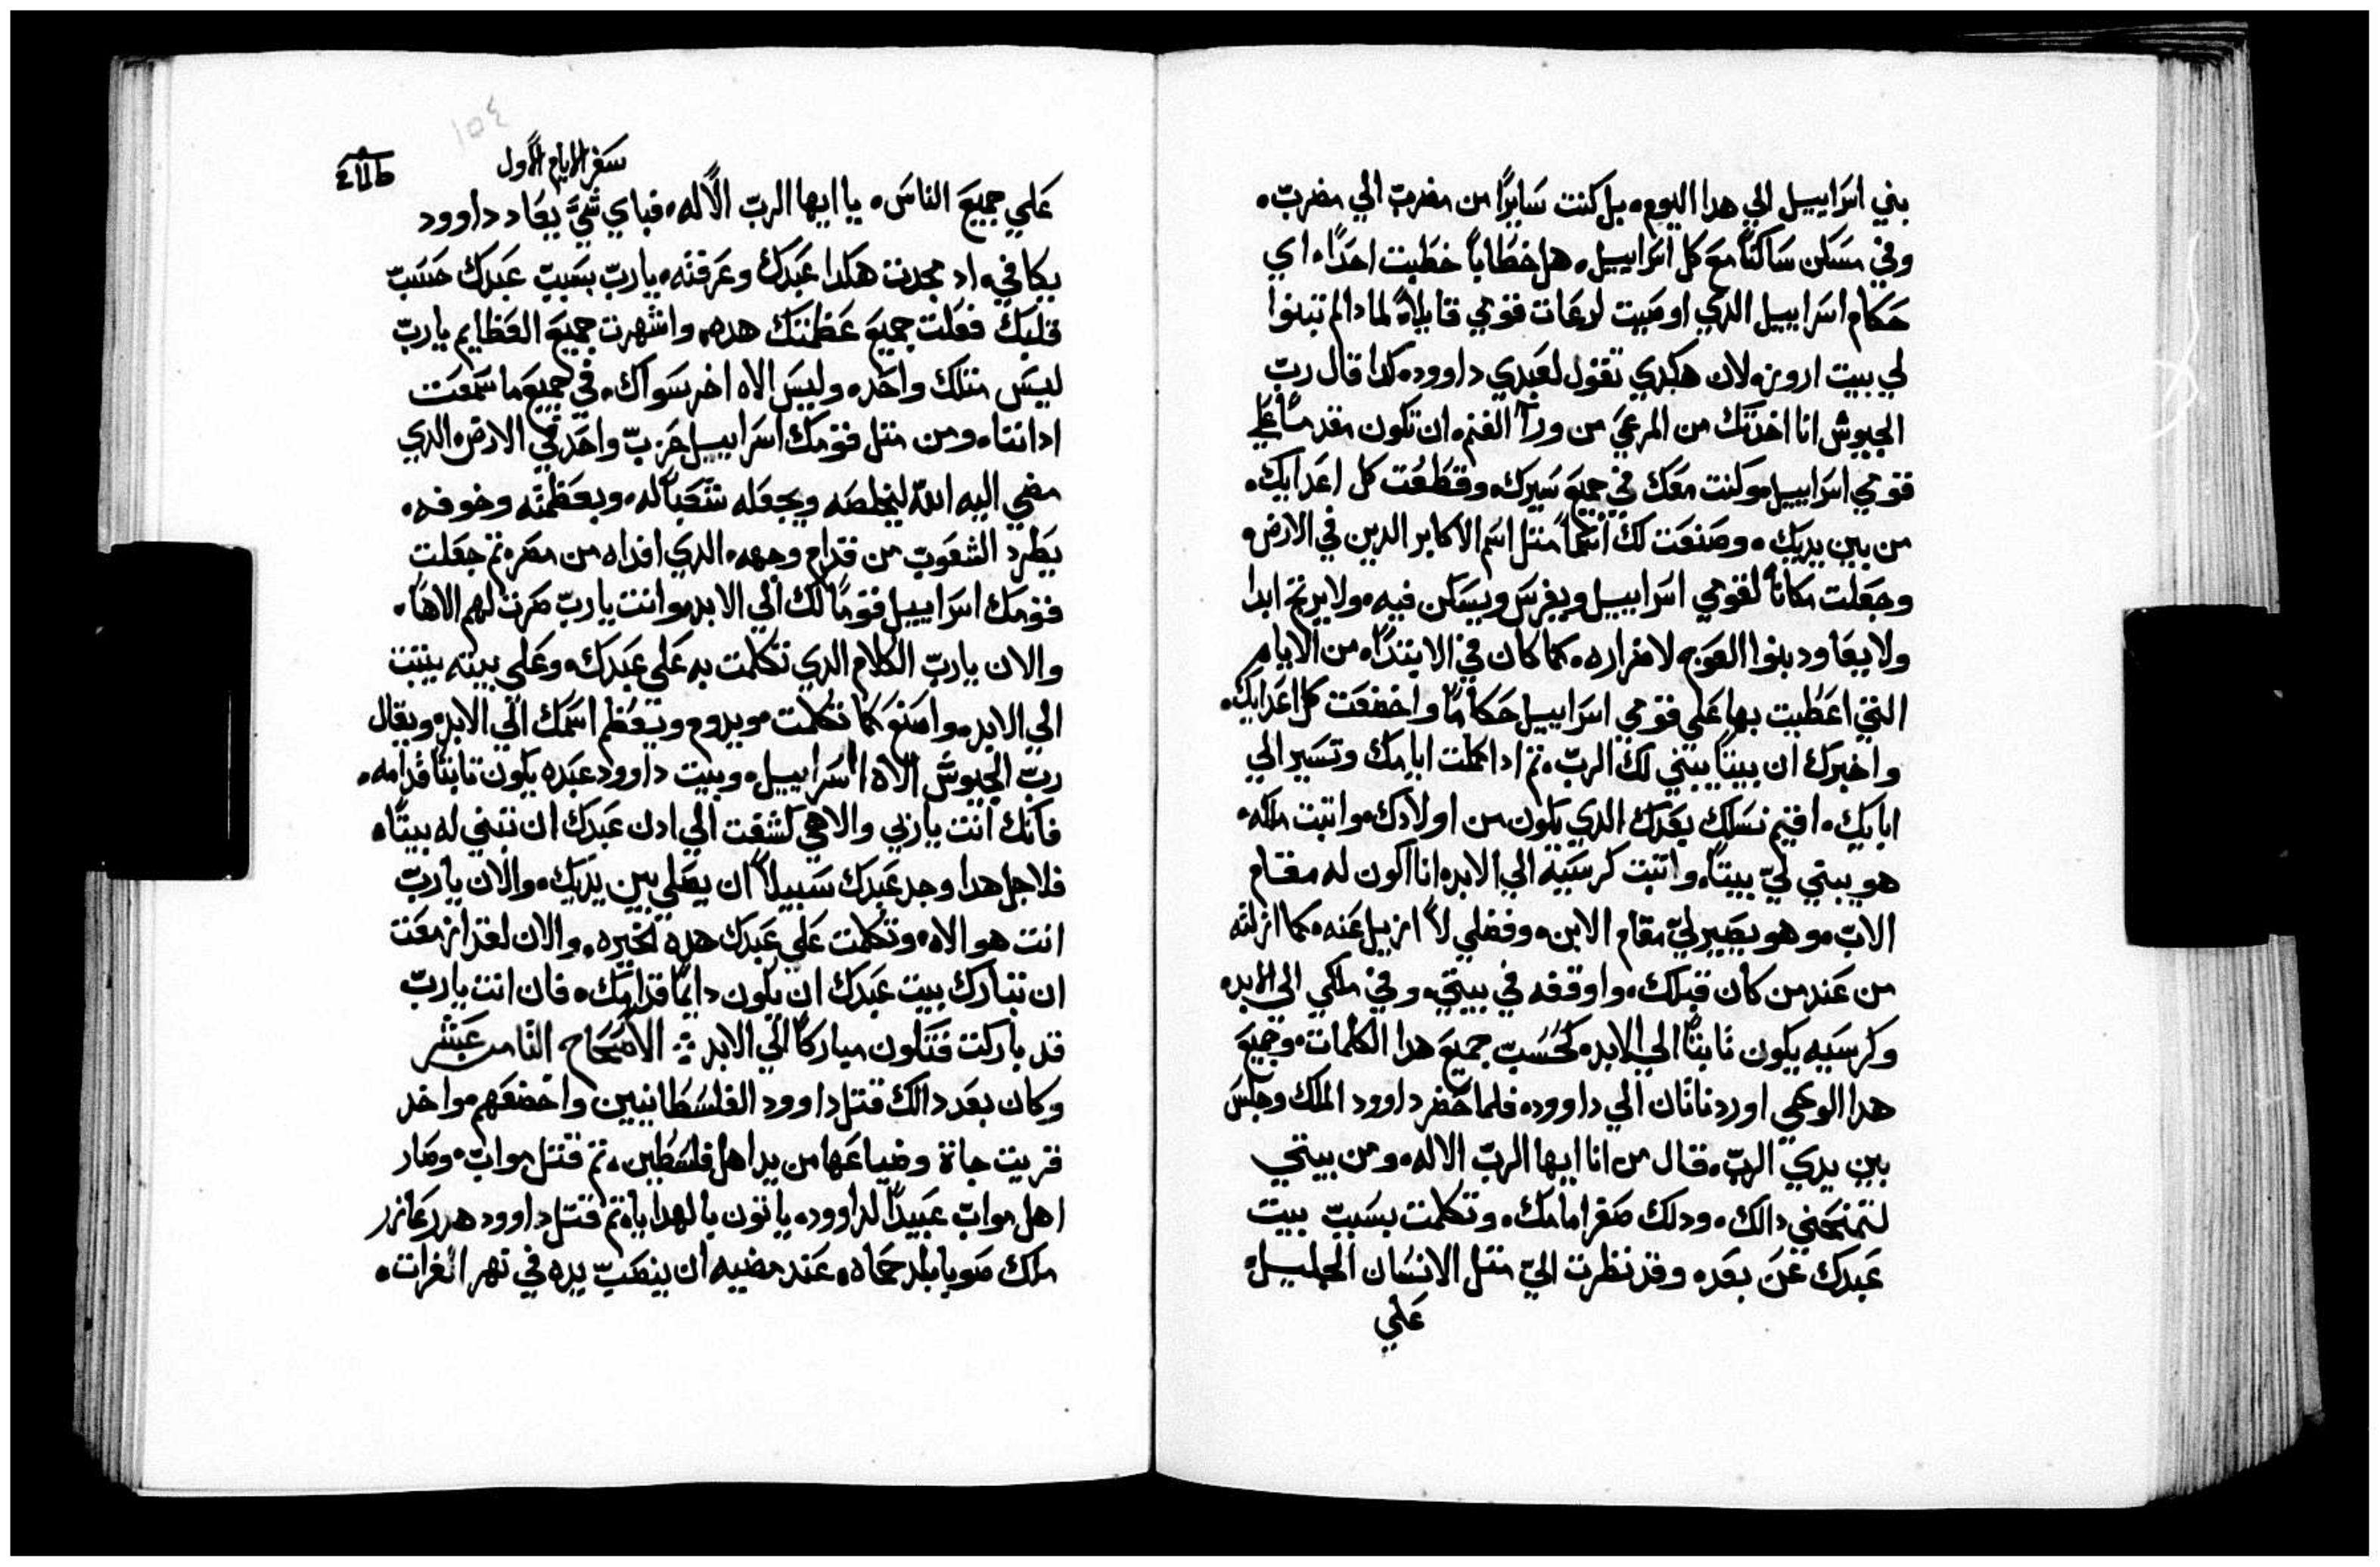 بني اسراييل الي هدا اليوم. بل كنت سايرًا من مضرب الي مضرب.
وفي مسكن ساكنًا مع كل اسراييل. هل خطابًا خطبت احدًا. اي
حكام اسراييل الدي اوصيت لرعات قومي قايلاً لمادا لم تبنوا
لي بيت ارويز. لان هكدي تقول لعبدي داوود. كدا قال رب
الجيوش انا اخدتك من المرعي من ورآ الغنم. ان تكون مقدمًا علي
قومي اسراييل. وكنت معك في جميع سيرك. وقطعت كل اعدايك.
من بين يديك. وصنعت لك اسمًا متل اسم الاكابر الدين في الارض.
وجعلت مكانًا لقومي اسراييل ويغرس ويسكن فيه. ولا يرتج ابدا
ولا يعاود بنوا العوج لاضراره. كما كان في الابتداء. من الايام
التي اعطيت بها علي قومي اسراييل حكامًا واخضعت كل اعدايك.
واخبرك ان بيتًا يبني لك الرب. تم ادا كملت ايامك وتسير الي
ابايك. اقيم نسلك بعدك الدي يكون من اولادك. واتبت ملكه.
هو يبني لي بيتًا. واتبت كرسيه الي الابد. انا اكون له مقام
الاب. وهو يصير لي مقام الابن. وفضلي لا ازيل عنه. كما ازلته
من عند من كان قبلك. واوقفه في بيتي. وفي ملكي الي الابد.
وكرسيه يكون تابتًا الي الابد. كحسب جميع هدا الكلمات. وجميع
هدا الوحي اورد ناتان الي داوود. فلما حضر داوود الملك وجلس
بين يدي الرب. قال من انا ايها الرب الاله. ومن بيتي
لتمنحني دالك. ودلك صغر امامك. وتكلمت بسبب بيت
عبدك عن بعد. وقد نظرت الي متل الانسان الجليل.
علي
سفر الايام الاول
علي جميع الناس. يا ايها الرب الاله. فباي شي يعاد داوود
يكافي. اد مجدت هكدا عبدك وعرفته. يارب بسبب عبدك حسب
قلبك فعلت جميع عظمتك هده. واشهرت جميع العظايم يارب
ليس متلك واحد. وليس الاه اخر سواك. في جميع ما سمعت
اداننا. ومن متل قومك اسراييل حزب واحد في الارض. الدي
مضي اليه الله ليخلصه ويجعله شعبًا له. وبعظمته وخوفه.
يطرد الشعوب من قدام وجهه. الدي افداه من مصر. تم جعلت
قومك اسراييل قومًا لك الي الابد. وانت يارب صرت لهم الاهًا.
والان يارب الكلام الدي تكلمت به علي عبدك. وعلي بيته يتبت
الي الابد. واصنع كما تكلمت. ويدوم ويعظم اسمك الي الابد. ويقال
رب الجيوش الاه اسراييل. وبيت داوود عبده يكون تابتًا قدامه.
فانك انت ياربي والاهي كشفت الي ادن عبدك ان تبني له بيتًا.
فلاجل هدا وجد عبدك سبيلاً ان يصلي بين يديك. والان يارب
انت هو الاه. وتكلمت علي عبدك هده الخيره. والان لقد ازمعت
ان تبارك بيت عبدك ان يكون دايمًا قدامك. فان انت يارب
قد باركت فتكون مباركًا الي الابد ❖ الاصحاح. التامن عشر
وكان بعد دالك قتل داوود الفلسطانيين واخضعهم. واخد
قريت جاة وضياعها من يد اهل فلسطين. تم قتل مواب. وصار
اهل مواب عبيدًا لداوود. ياتون بالهدايا. تم قتل داوود هدرعازر
ملك صوبا بلد حماه. عند مضيه ان ينصب يده في نهر الفرات.